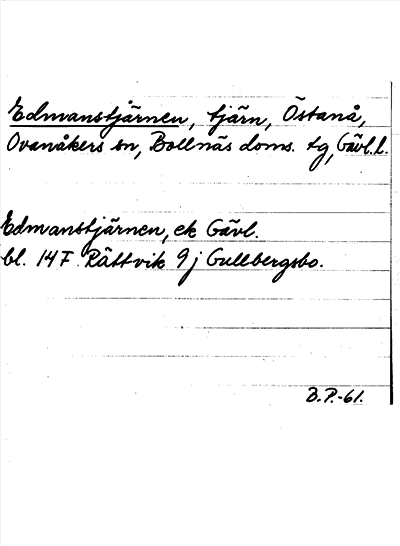 Edmanstjärnen, tjärn, Östanå,
Ovanåkers sn, Bollnäs doms. tg, Gävl. l.
Edmanstjärnen, ek Gävl.
bl. 14 F. Rättvik 9 j Gullbergsbo.
B.P.-61.